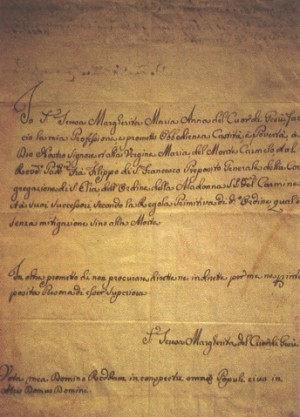 Io S.r Teresa Margherita Maria Anna del Cuor di Giesù fac
cio la mia Professione, e prometto Obbedienza Castità, e Povertà, a
Dio Nostro Signore, et alla Vergine Maria del Monte Carmelo, et al
Rever.mo Pad.e Fra Filippo di S. Francesco Preposito Generale della Con
gregazione di S. Elia dell'Ordine della Madonna S.ma del Carmine
et à suoi Successori, secondo la Regola Primitiva di d.o Ordine, qual'è
senza mitigazione sino alla Morte
In oltre prometto di non procurare, direttè, ne indirettè per me ne p
posita Persona di esser Superiora
S.r Teresa Margherita del Cuor di Giesù
Vota mea Domino Reddam in conspectu omnis Populi eius in
Atriis Domus Domini.